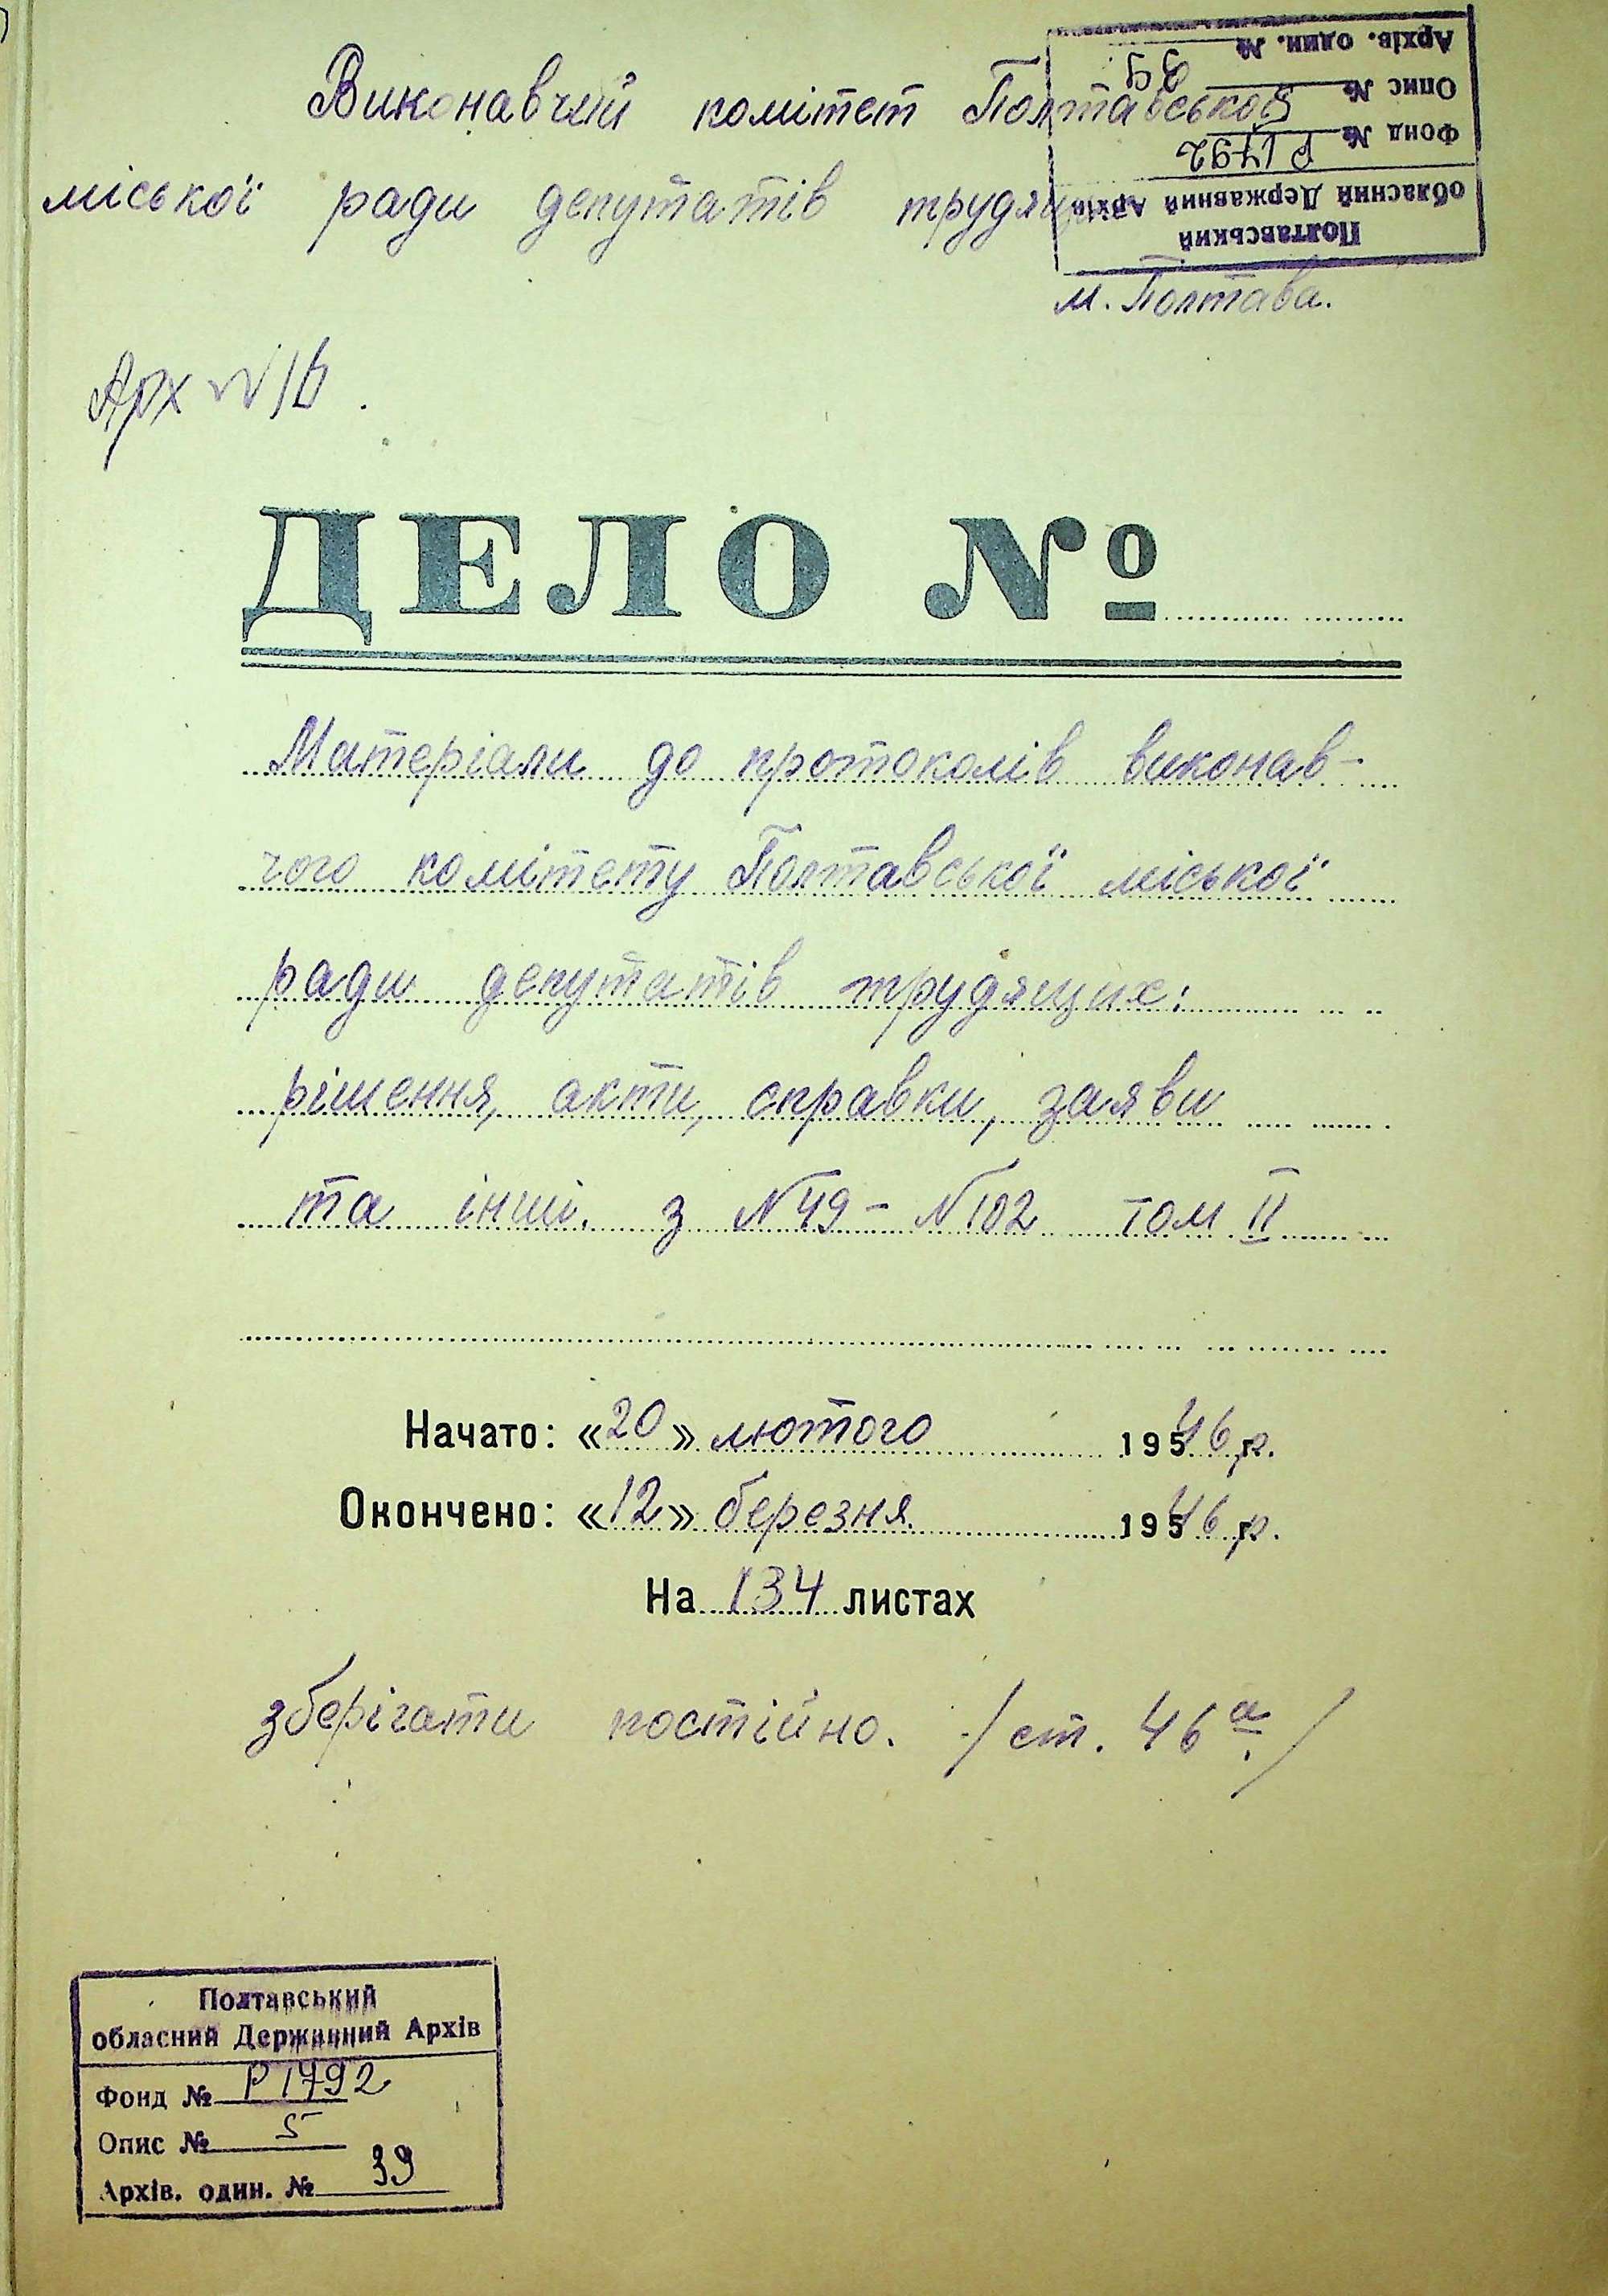 Виконавчий комітет Полтавської
міської ради депутатів
м. Полтава.
Полтавський
обласний Державний Архів
Фонд № Р1792
Опис № 5
Архів. один. № 39
Арх №16.
ДЕЛО №
Матеріали до протоколів виконав-
чого комітету Полтавської міської
ради депутатів трудящих:
рішення, акти, справки, заяви
та інші. з №49 - №102 том II
Начато: «20» лютого 1946 р.
Окончено: «12» березня 1946 р.
На 134 листах
зберігати постійно. /ст. 46а/
Полтавський
обласний Державний Архів
Фонд № Р1792
Опис № 5
Архів. один. № 39